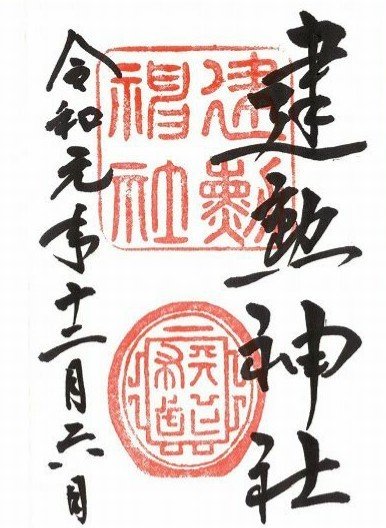 建勲神社
建勲神社
天下布武
令和元年十二月六日